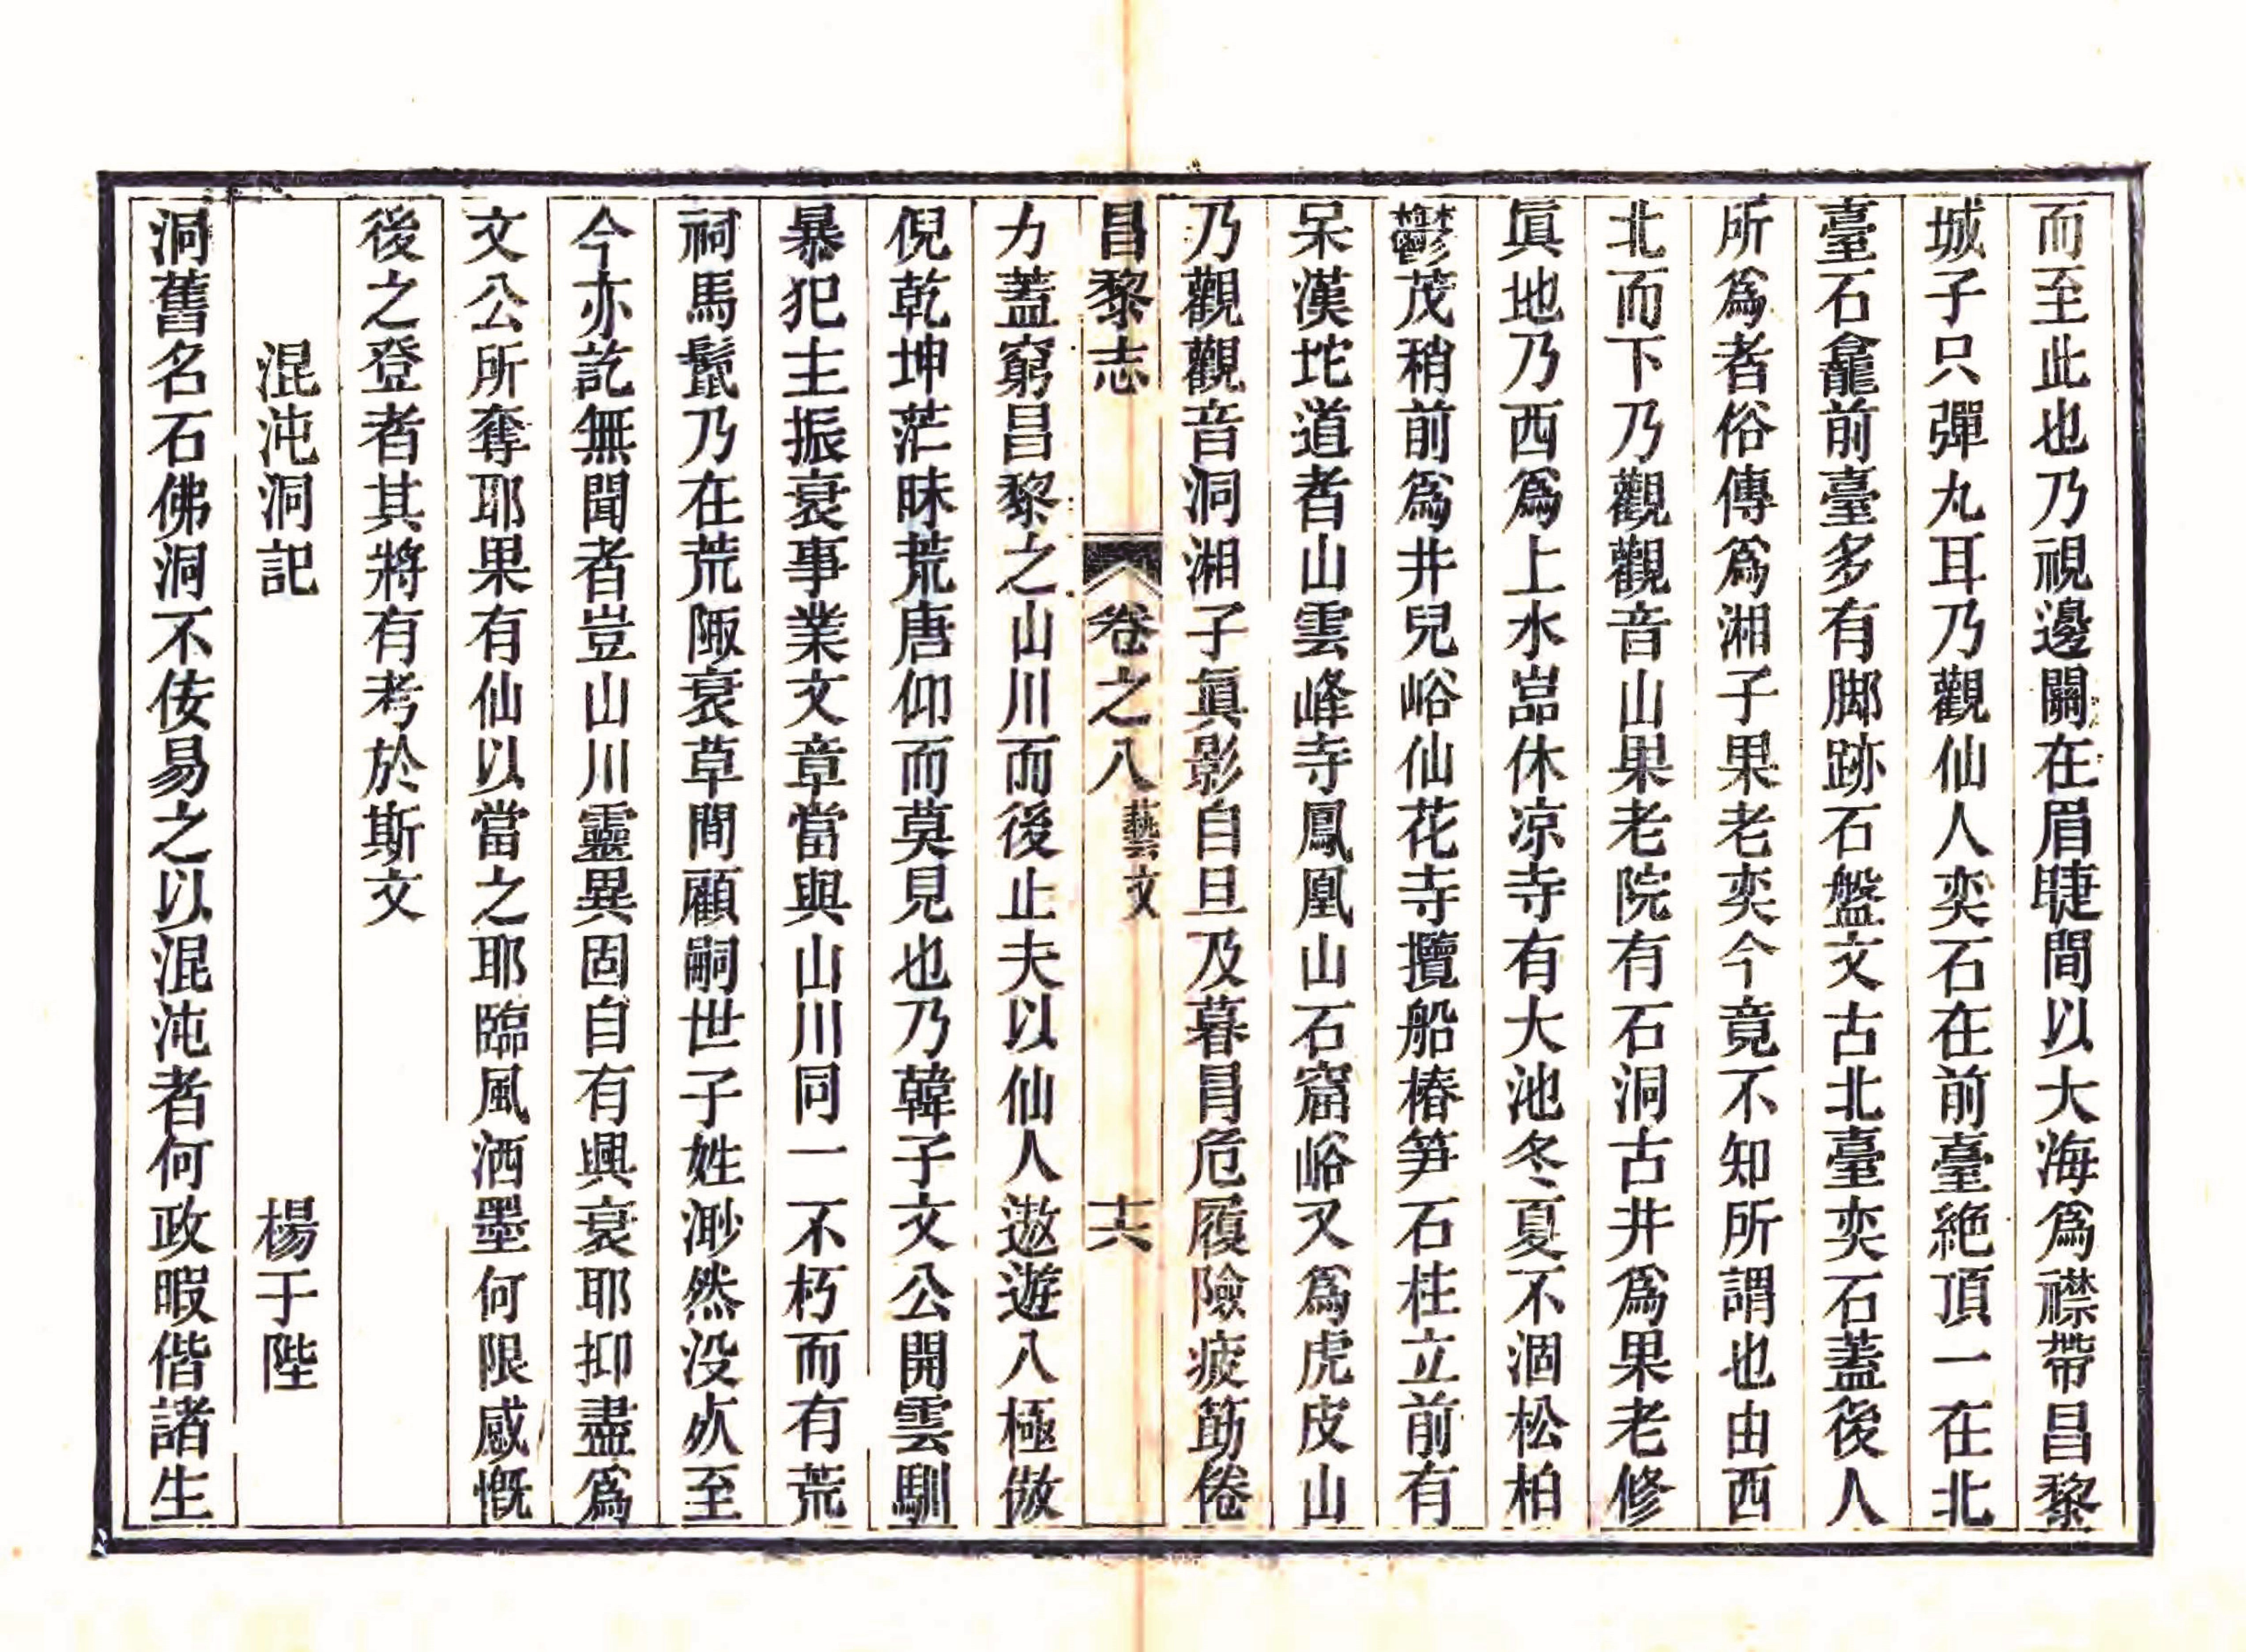 而至此也乃視邊關在眉睫間以大海爲襟帶昌黎
城子只彈丸耳乃觀仙人奕石在前臺絶頂一在北
臺石龕前臺多有脚跡石盤文古北臺奕石蓋後人
所爲者俗傳爲湘子果老奕今竟不知所謂也由西
北而下乃觀觀音山果老院有石洞古井爲果老修
眞地乃西爲上水嵓休凉寺有大池冬夏不涸松柏
鬱茂稍前爲井兒峪仙花寺攬船樁笋石柱立前有
呆漢坨道者山雲峰寺鳳凰山石窟峪又爲虎皮山
乃觀觀音洞湘子眞影自旦及暮冐危履險疲筋倦
昌黎志 卷之八 藝文 十六
力蓋窮昌黎之山川而後止夫以仙人遨遊八極傲
倪乾坤茫昧荒唐仰而莫見也乃韓子文公開雲馴
暴犯主振衰事業文章當與山川同一不朽而有荒
祠馬鬛乃在荒陬衰草間顧嗣世子姓渺然没灰至
今亦訖無聞者豈山川靈異固自有興衰耶抑盡爲
文公所奪耶果有仙以當之耶臨風洒墨何限感慨
後之登者其將有考於斯文
混沌洞記 楊于陛
洞舊名石佛洞不佞易之以混沌者何政暇偕諸生